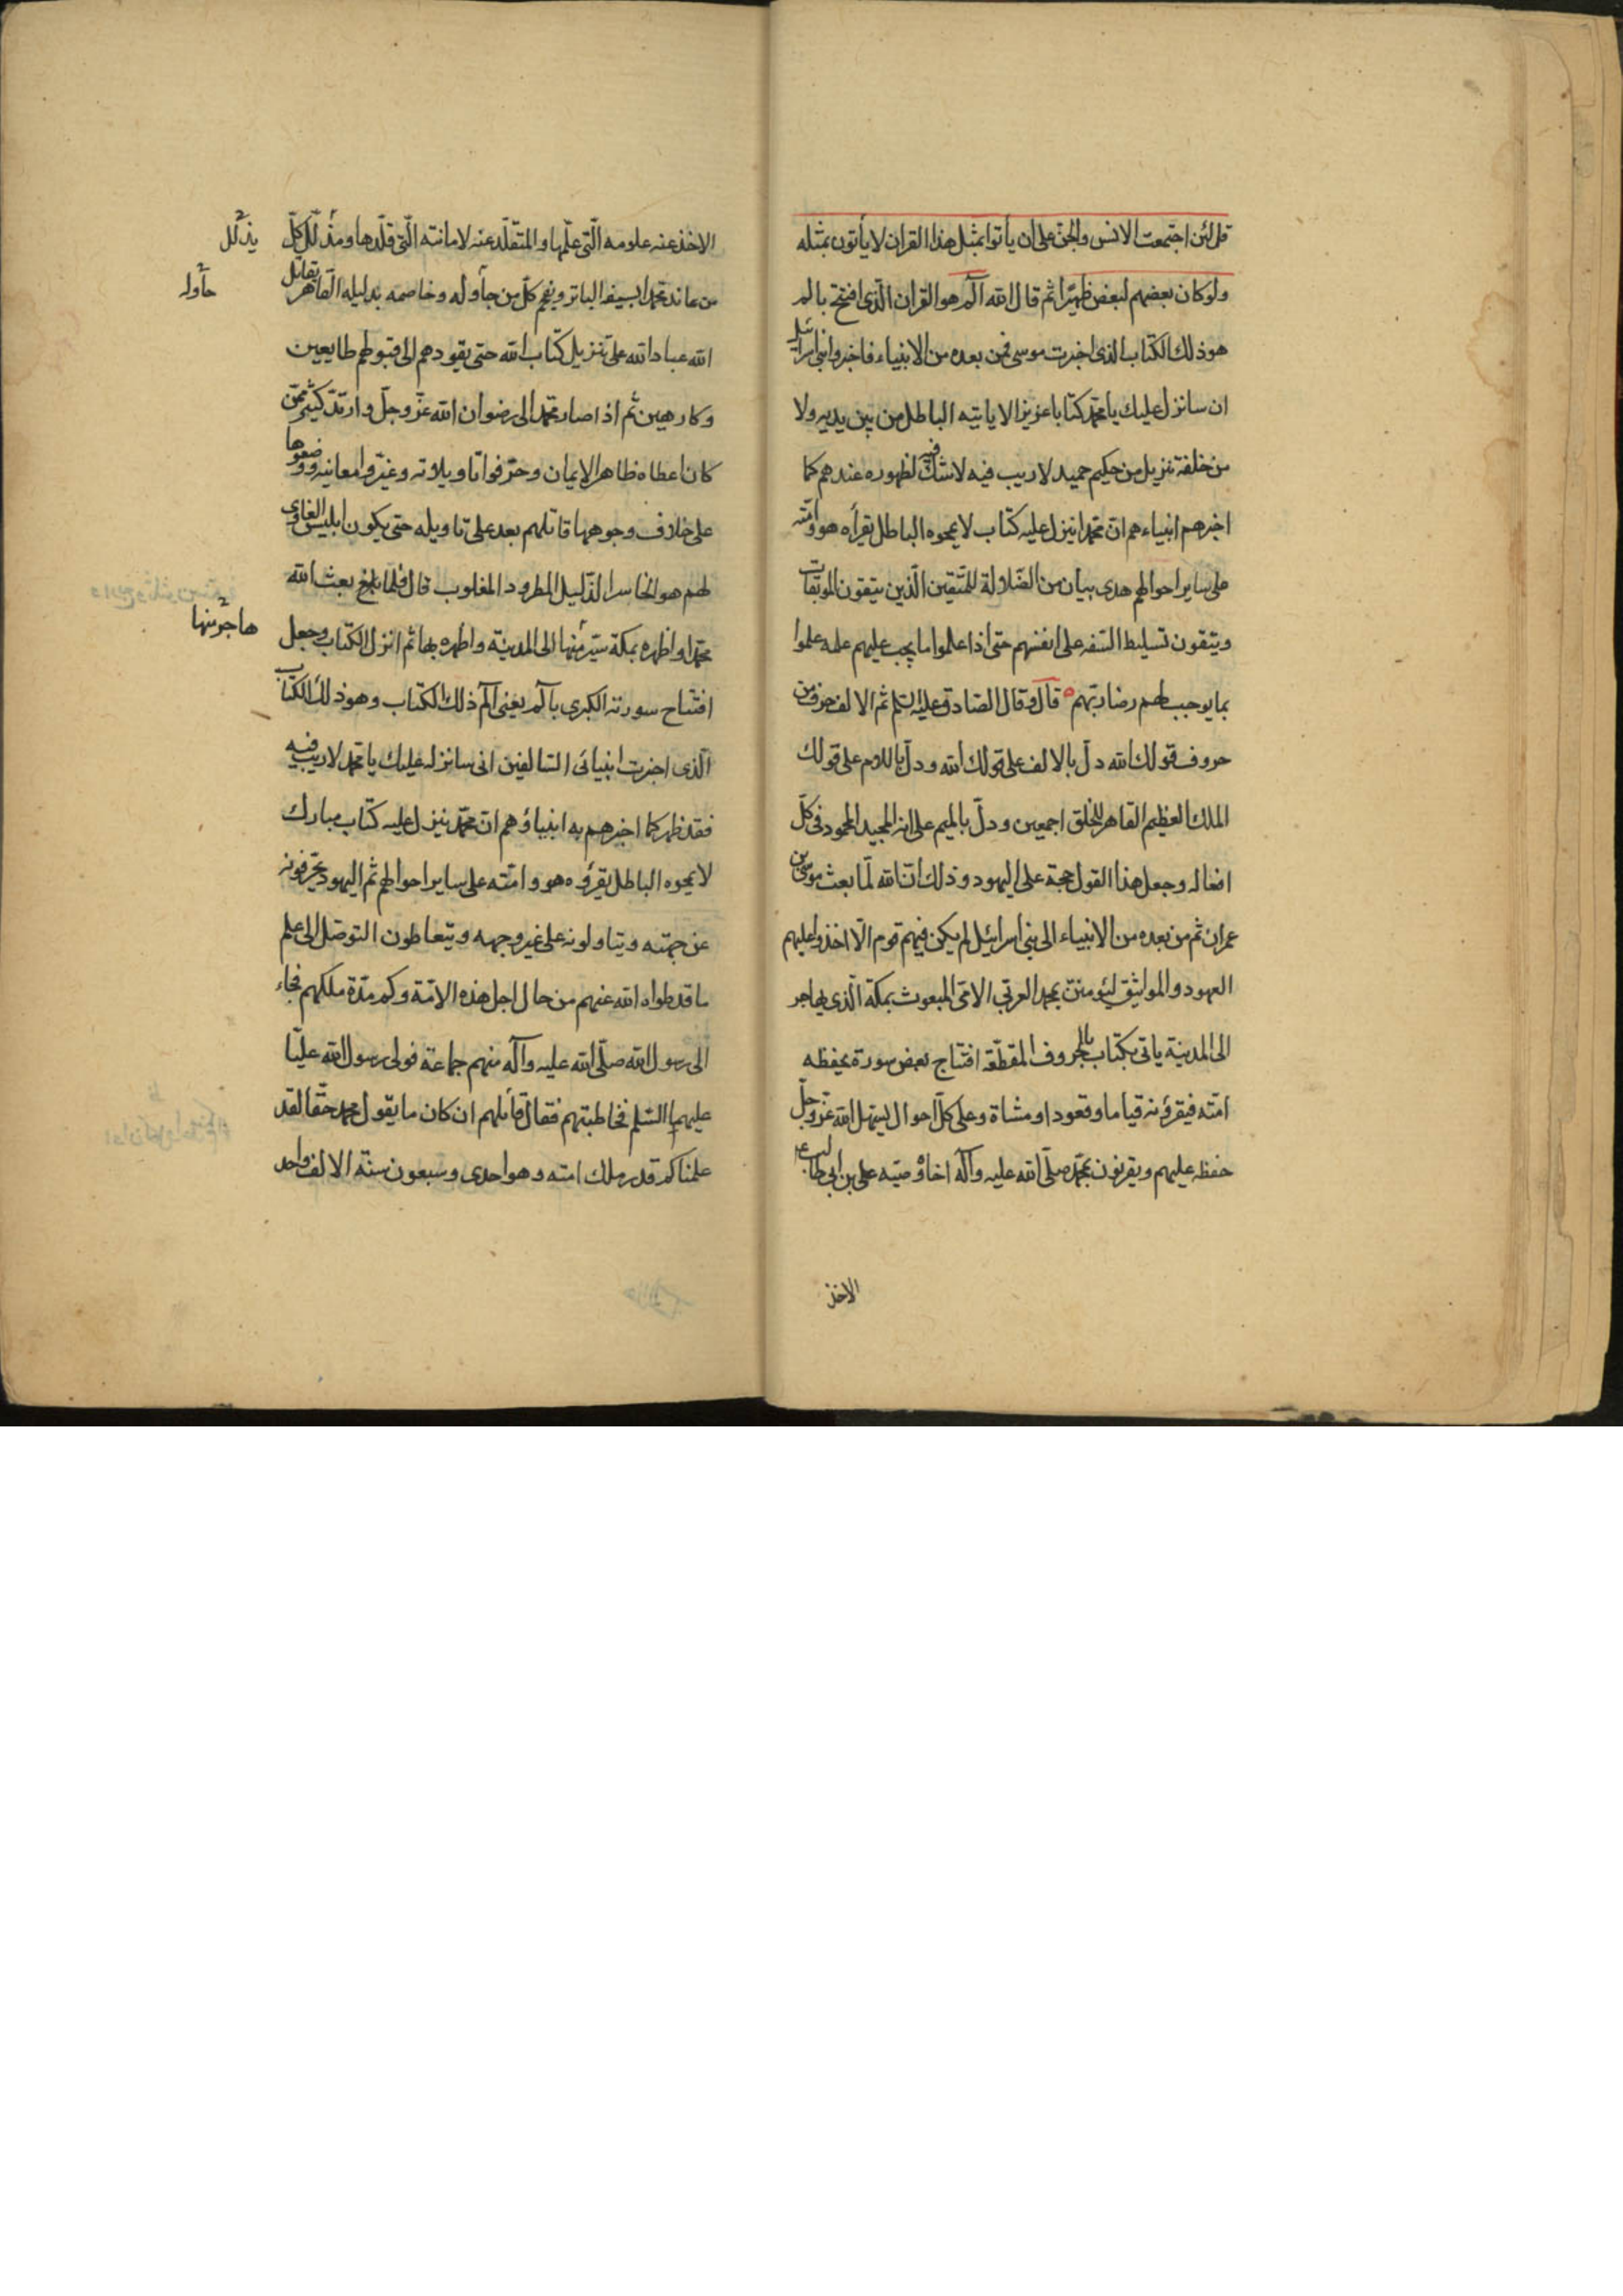 قل لئن اجتمعت الانس والجن على ان يأتوا بمثل هذا القران لا يأتون بمثله
ولو كان بعضهم لبعض ظهيرا ثم قال الله الم هو القران الذى افتتح بالم
هو ذلك الكتاب الذى اخبرت موسى فمن بعده من الانبياء فاخبروا بنى اسرائيل
ان سانزل عليك يا محمد كتابا عزيزا لا ياتيه الباطل من بين يديه ولا
من خلفه تنزيل من حكيم حميد لا ريب فيه لا شك فيه لظهوره عندهم كما
اخبرهم انبياءهم ان محمدا ينزل عليه كتاب لا يمحوه الباطل يقرأه هو وامته
على ساير احوالهم هدى بيان من الضلالة للمتقين الذين يتقون الموبقات
ويتقون تسليط السفه على انفسهم حتى اذا علموا ما يجب عليهم علمه علموا
بما يوجب لهم رضا ربهم قال وقال الصادق عليه السلم ثم الالف حرف من
حروف قولك الله دل بالالف على قولك الله ودل باللام على قولك
الملك العظيم القاهر للخلق اجمعين ودل بالميم على انه المجيد المحمود فى كل
افعاله وجعل هذا القول حجة على اليهود وذلك ان الله لما بعث موسى بن
عمران ثم من بعده من الانبياء الى بنى اسرائيل لم يكن فيهم قوم الا اخذوا عليهم
العهود والمواثيق ليؤمنن بمحمد العربى الامى المبعوث بمكة الذى يهاجر
الى المدينة ياتى بكتاب بالحروف المقطعة افتتاح بعض سوره يحفظه
امته فيقرؤنه قياما وقعودا ومشاة وعلى كل احوال ليسهل الله عز وجل
حفظه عليهم ويقرنون بمحمد صلى الله عليه وآله اخاه وصيه على بن ابى طالب ع
الاخذ
الاخذ عنه علومه التى علمها والمتقلد عنه لامانته التى قلدها ومذلل كل
يذلل
من عاند محمدا بسيفه الباتر ويفحم كل من جأوله وخاصمه بدليله القاهر يقاتل
حأوله
الله عباد الله على تنزيل كتاب الله حتى يقودهم الى قبولهم طايعين
وكارهين ثم اذا صار محمد الى رضوان الله عز وجل وارتد كثير ممن
كان اعطاه ظاهر الايمان وحرفوا تاويلاته وغيروا معانيه ووضعوها
على خلاف وجوهها قاتلهم بعد على تاويله حتى يكون ابليس الغاوى
لهم هو الخاسر الذليل المطرود المغلوب قال فلما بعث الله
محمدا واظهره بمكة سيّره منها الى المدينة واظهره بها ثم انزل الكتاب وجعل
هاجر منها
افتتاح سورته الكبرى بالم يعنى الم ذلك الكتاب وهو ذلك الكتاب
الذى اخبرت انبيائى السالفين انى سانزله عليك يا محمد لا ريب فيه
فقد ظهر كما اخبرهم به انبياؤهم ان محمد ينزل عليه كتاب مبارك
لا يمحوه الباطل يقرؤه هو وامته على ساير احوالهم ثم اليهود يحرفونه
عن جهته ويتاولونه على غير وجهه ويتعاطون التوصل الى علم
ما قد طواه الله عنهم من حال اجل هذه الامة وكم مدة ملكهم فجاء
الى رسول الله صلى الله عليه وآله منهم جماعة فولى رسول الله عليا
عليهما السلم مخاطبتهم فقال قائلهم ان كان ما يقول محمد حقا لقد
علمناكم قدر ملك امته وهو احدى وسبعون سنة الالف واحد